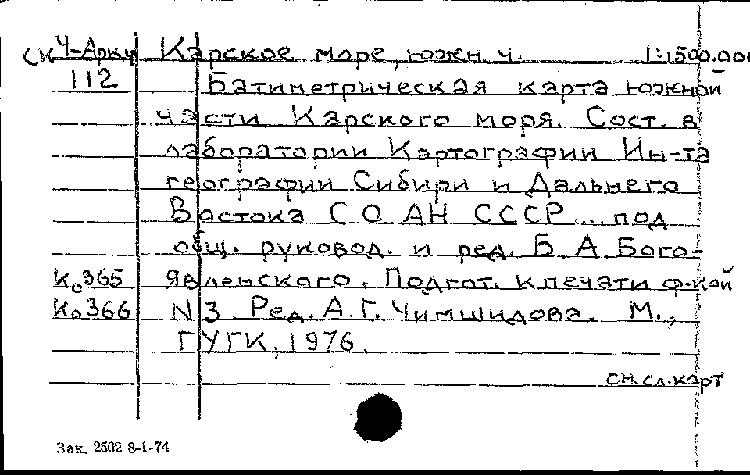 СК Ч-Аркт Карское море, южн. ч. 1:1500.000
112 Батиметрическая карта южной
части Карского моря. Сост. в
лаборатории Картографии Ин-та
географии Сибири и Дальнего
Востока СО АН СССР .. под
общ. руковод. и ред. Б. А. Бого-
К₀365 явленского. Подгот. к печати ф-кой
К₀366 N3 Ред. А. Г. Чимшидова. М.,
ГУГК, 1976.
см. сл. карт
Зак. 2502 8-1-74